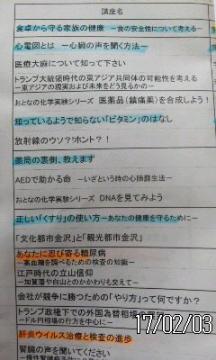 講座名
食卓から守る家族の健康 ー食の安全性について考えるー
心電図とは ー心臓の声を聞く方法ー
医療大麻について知って下さい
トランプ大統領時代の東アジア共同体の可能性を考える
ー東アジアの現実および未来をどう見るかー
おとなの化学実験シリーズ 医薬品(鎮痛薬)を合成しよう!
知っているようで知らない「ビタミン」のはなし
放射線のウソ?ホント?!
薬局の裏側、教えます
AEDで助かる命 ーいざという時の心肺蘇生ー
おとなの化学実験シリーズ DNAを見てみよう
正しい「くすり」の使い方ーあなたの健康を守るためにー
「文化都市金沢」と「観光都市金沢」
あなたに忍び寄る糖尿病
ー高血糖を調べるための検査の知識ー
江戸時代の立山信仰
ー加賀藩や白山とのかかわりに触れてー
会社が競争に勝つための「やり方」って何ですか?
トランプ政権下での外国為替相場
ードル円相場の行方を中心にー
肝炎ウイルス治療と検査の進歩
腎臓の声を聞いてください
17/02/03